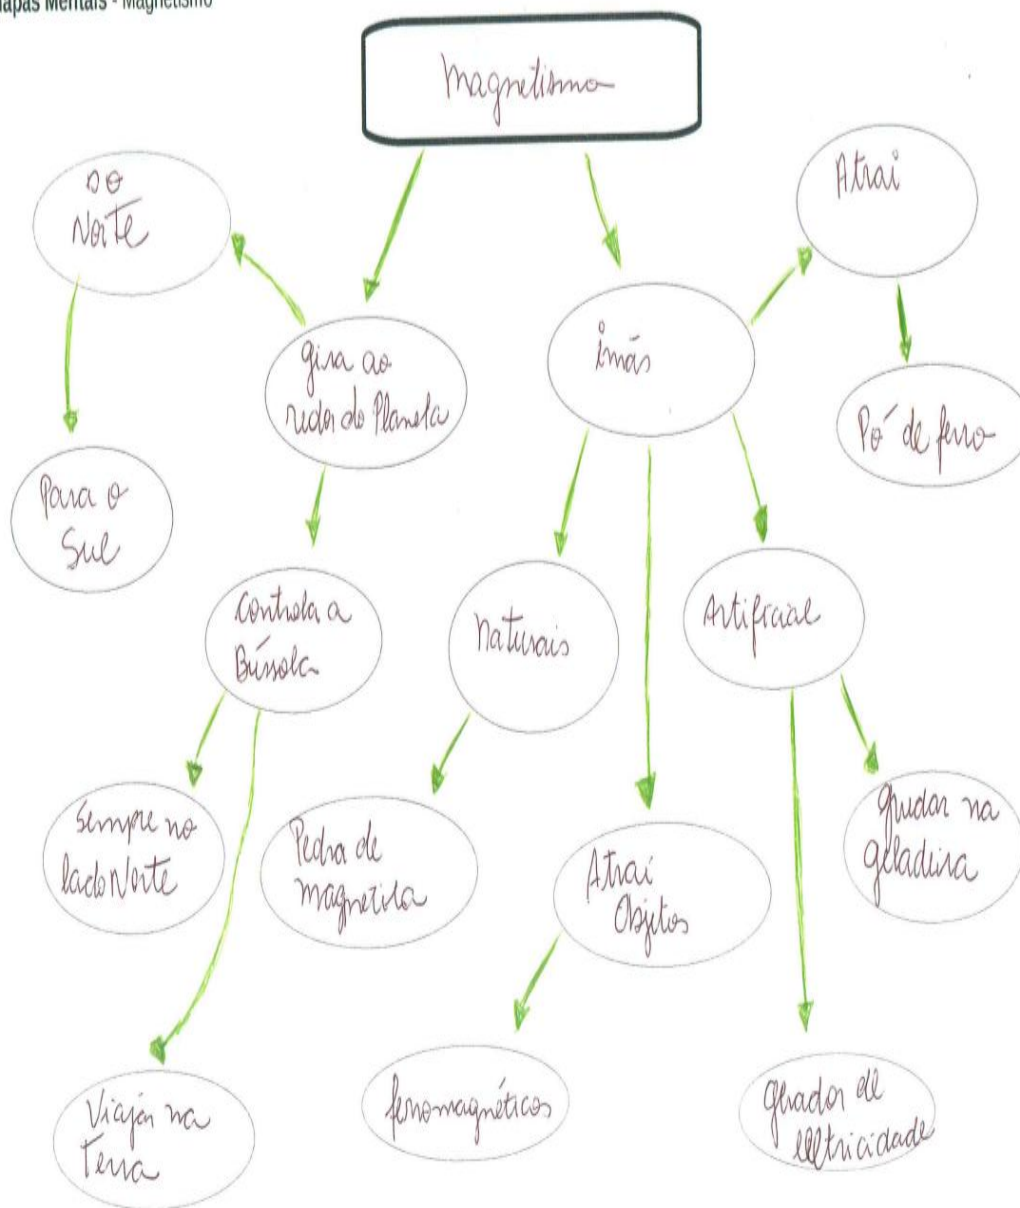 Mapas Mentais - Magnetismo
Magnetismo
Do
Norte
Atrai
gira ao
redor do Planeta
ímãs
Pó de ferro
Para o
Sul
Controla a
Bússola
Naturais
Artificial
Sempre no
lado Norte
Pedra de
magnetita
Atraí
Objetos
grudar na
geladeira
Viajar na
Terra
ferromagnéticos
gerador de
eletricidade